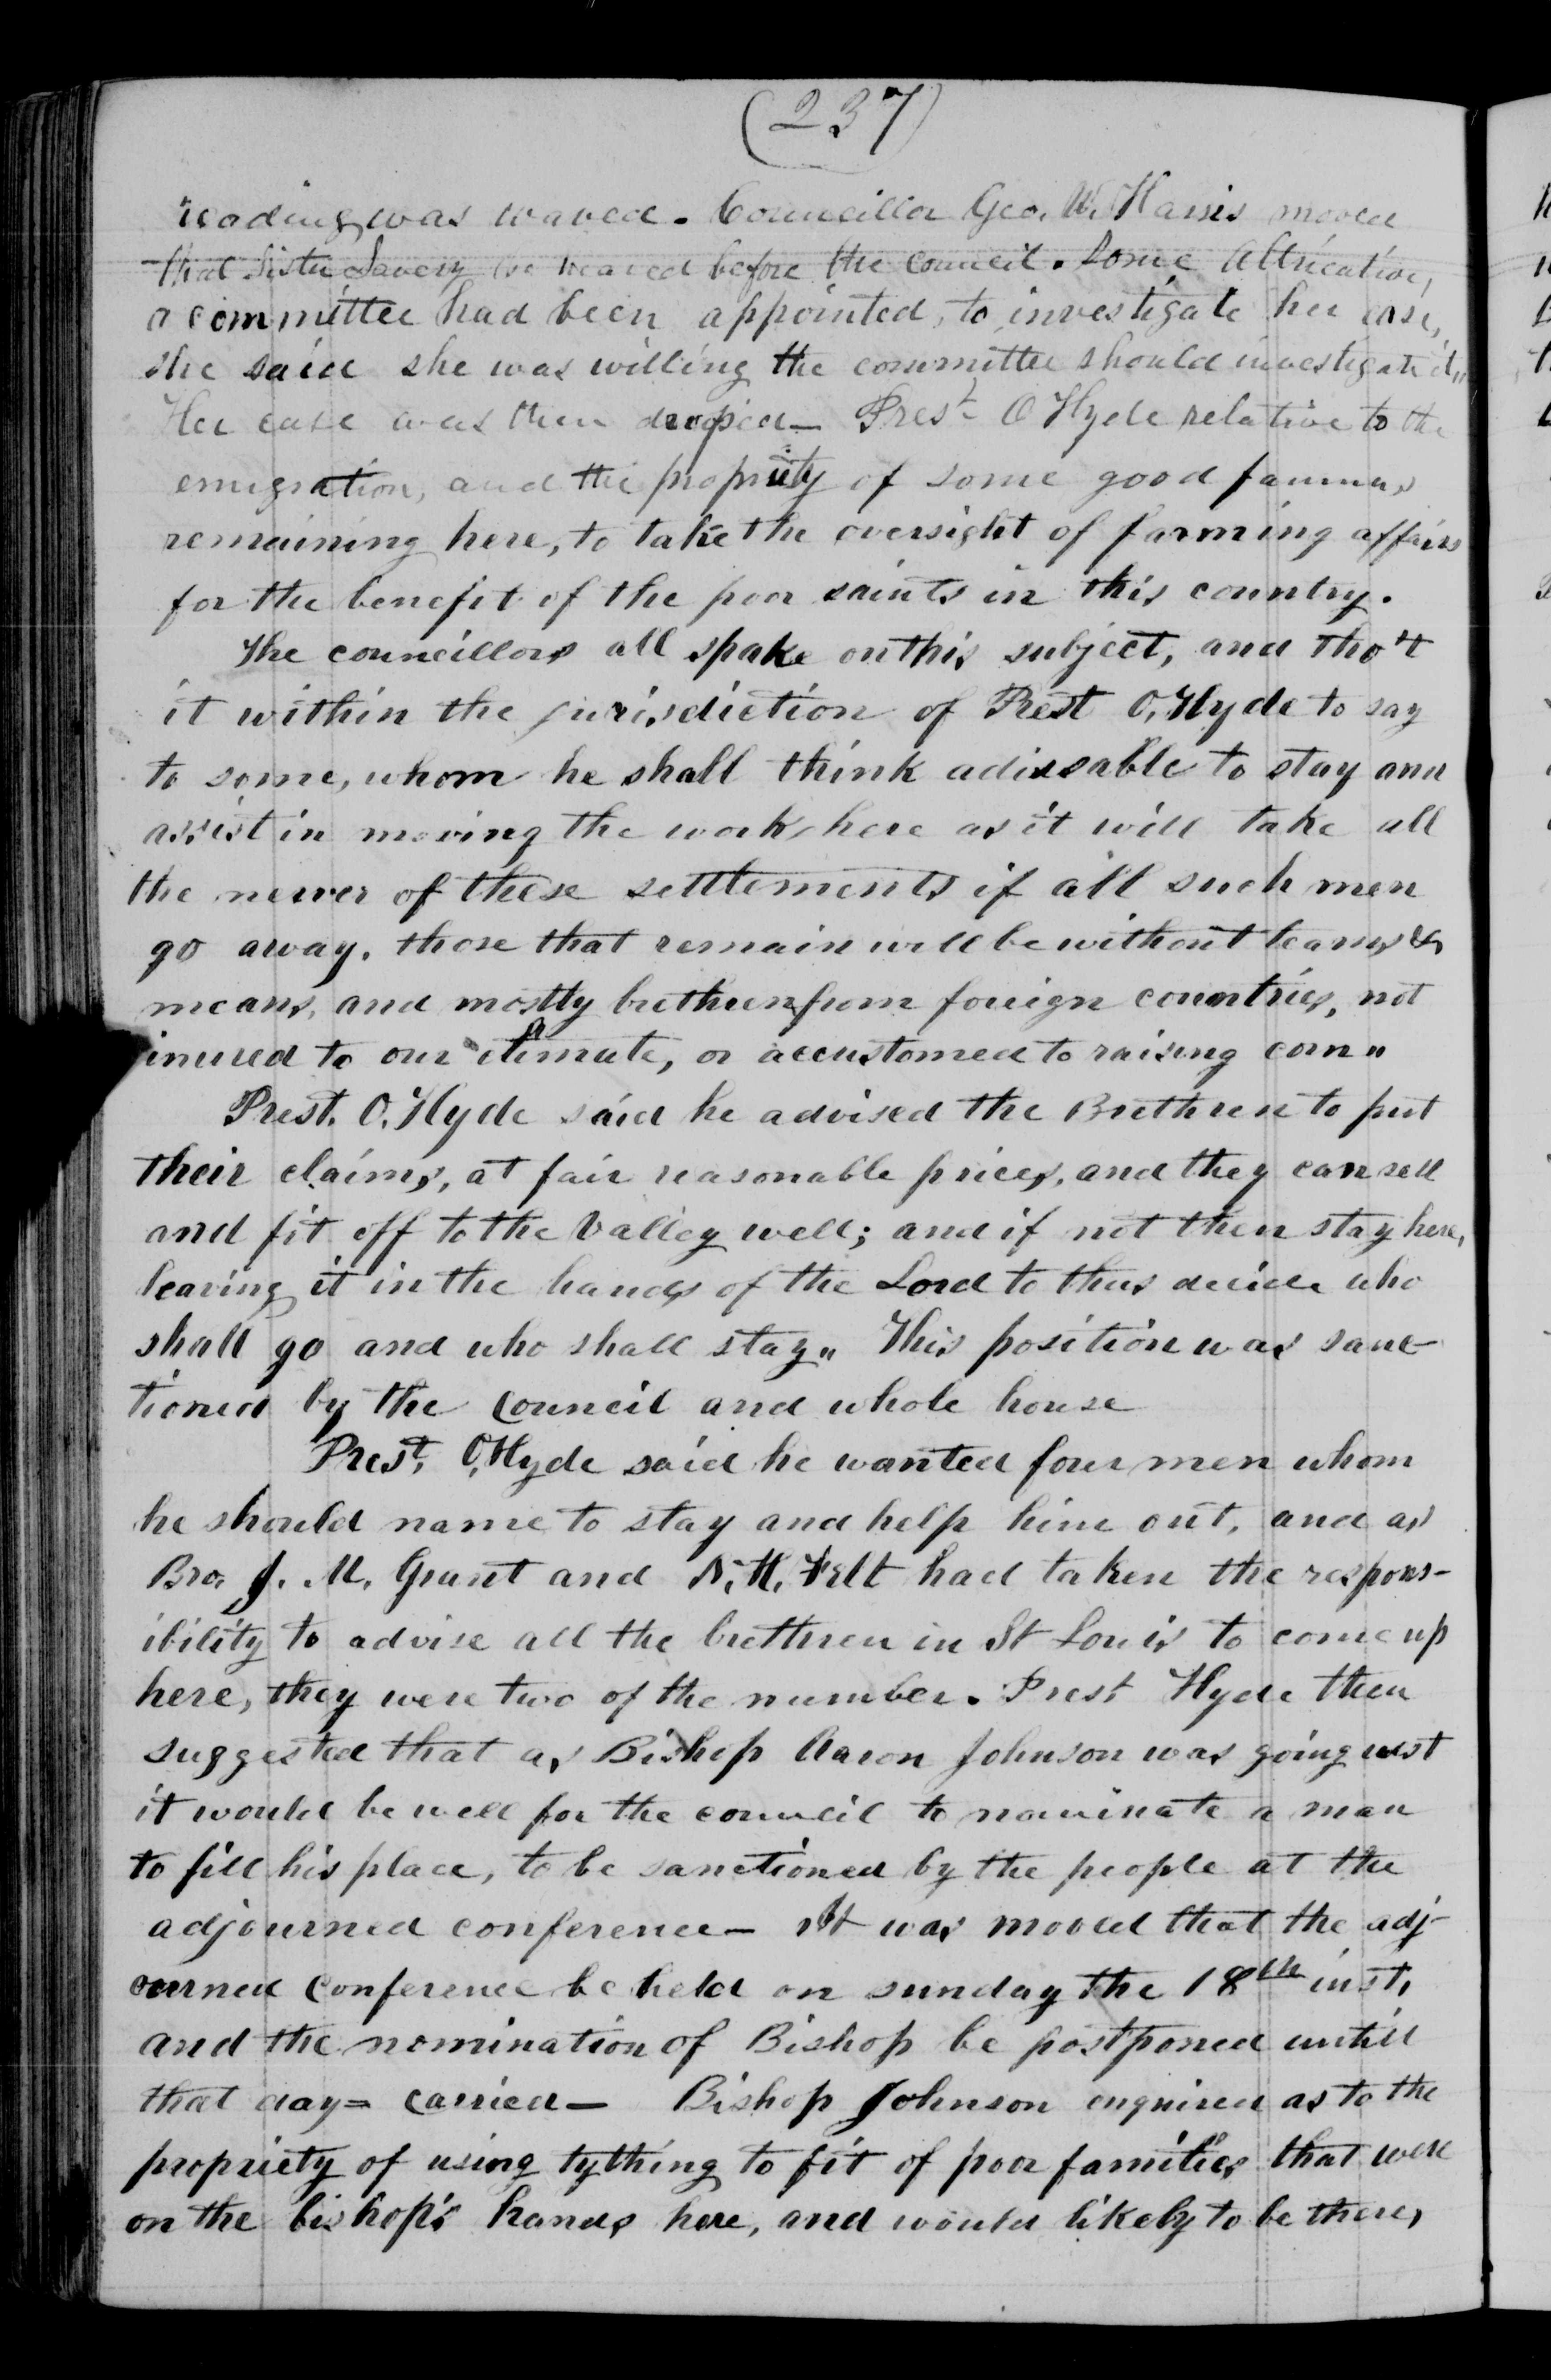 (237)
reading was waved. Councillor Geo. W. Harris moved
that Sister Savery be heared before the council. Some altrication,
a committee had been appointed, to investigate her case,
she said she was willing the committee should investigate it,,
Her case was then droped— Prest O Hyde relative to the
emigration, and the propriety of some good farmers
remaining here, to take the oversight of farming affairs
for the benefit of the poor saints in this country.
The councillors all spake on this subject, and tho't
it within the jurisdiction of Prest O, Hyde to say
to some, whom he shall think adissable to stay and
assist in moving the work here as it will take all
the nerver of these settlements if all such men
go away. those that remain will be without teams &
means, and mostly brethren from foreign countries, not
inured to our climate, or accustomed to raising corn„
Prest. O. Hyde said he advised the Brethren to put
their claims, at fair reasonable prices, and they can sell
and fit off to the Valley well; and if not then stay here,
leaving it in the hands of the Lord to thus decide who
shall go and who shall stay„ This position was sanc-
tioned by the council and whole house
Prest, O, Hyde said he wanted four men whom
he should name to stay and help him out, and as
Bro, J. M. Grant and N. H. Felt had taken the respons-
ibility to advise all the brethren in St Louis to come up
here, they were two of the number. Prest Hyde then
suggested that as Bishop Aaron Johnson was going west
it would be well for the council to nominate a man
to fill his place, to be sanctioned by the people at the
adjourned conference— It was mooved that the adj-
ourned conference be held on sunday the 18th inst,
and the nomination of Bishop be postponed untill
that day= carried— Bishop Johnson enquired as to the
propriety of using tything to fit of poor families that were
on the bishop's hands here, and would likely to be there,